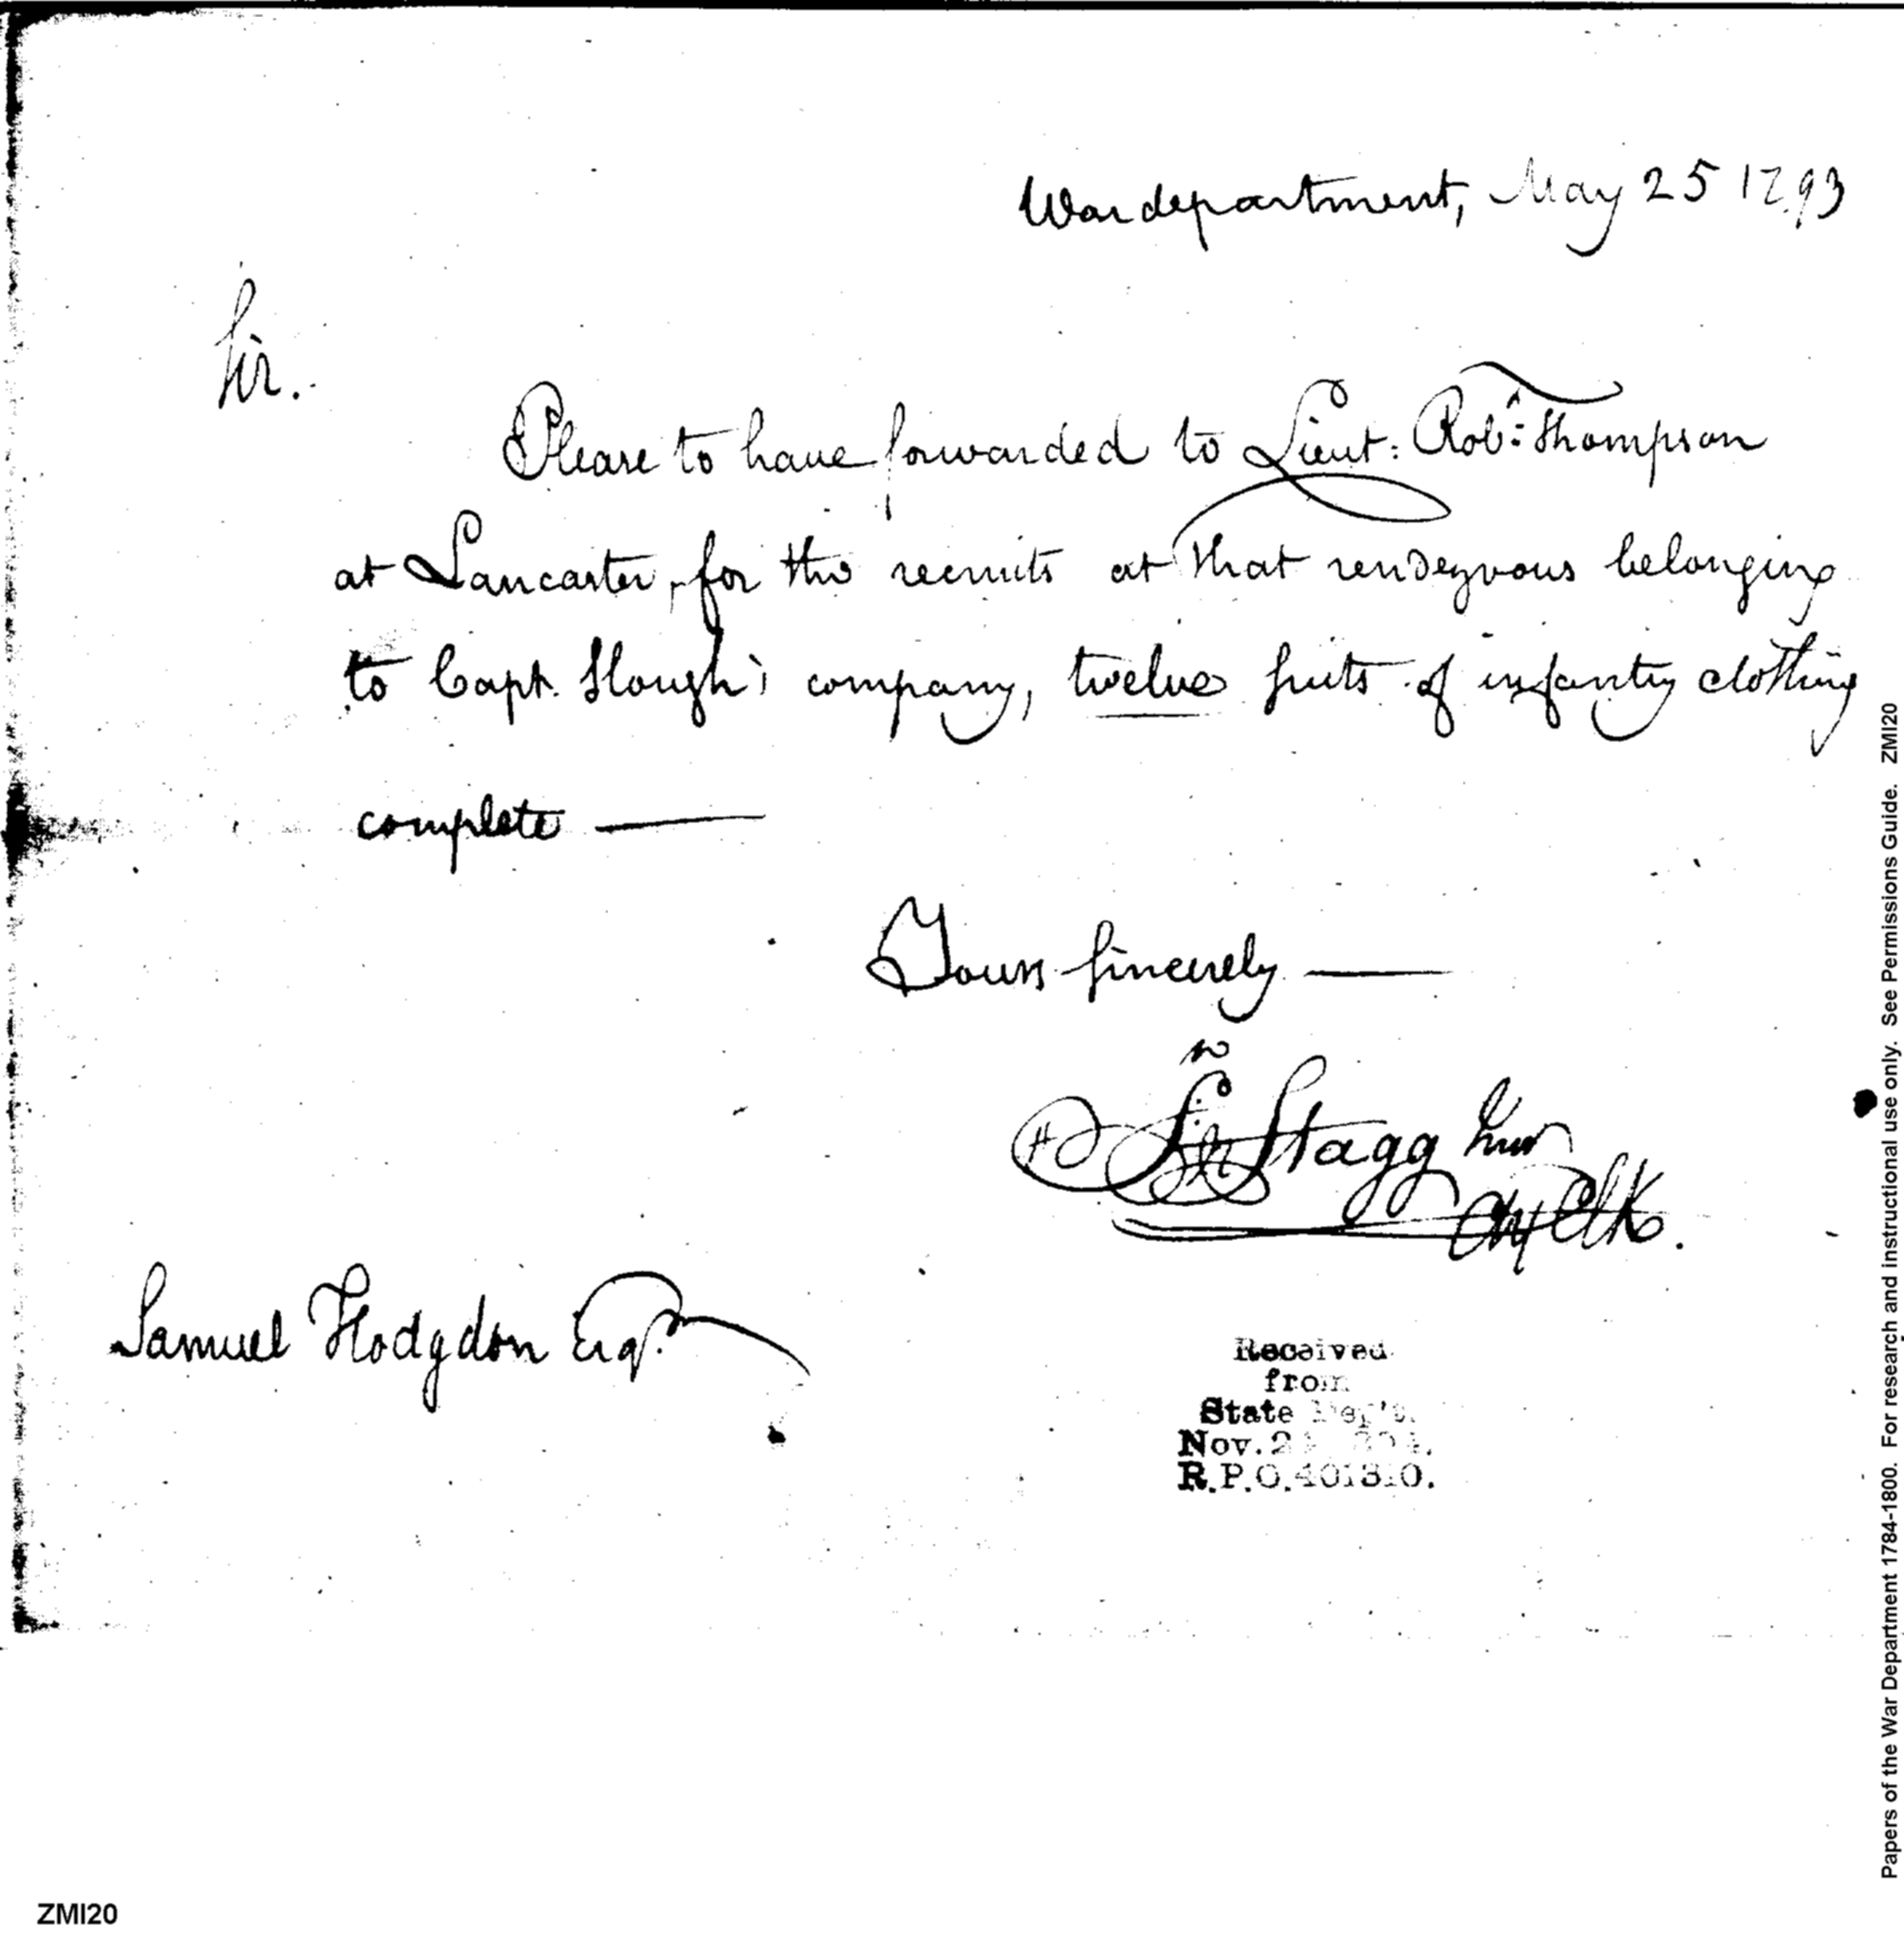 War department, May 25 1793
Sir.
Please to have forwarded to Lieut: Robt. Thompson
at Lancaster, for the recruits at that rendezvous belonging
to Capt. Slough's company, twelve suits of infantry clothing
complete —
Yours sincerely —
Jno Stagg Junr
Chf Clk.
Samuel Hodgdon Esqr.
Received
from
State Dep't.
Nov.
R.P.O. 401310.
Papers of the War Department 1784-1800. For research and instructional use only. See Permissions Guide. ZMI20
ZMI20